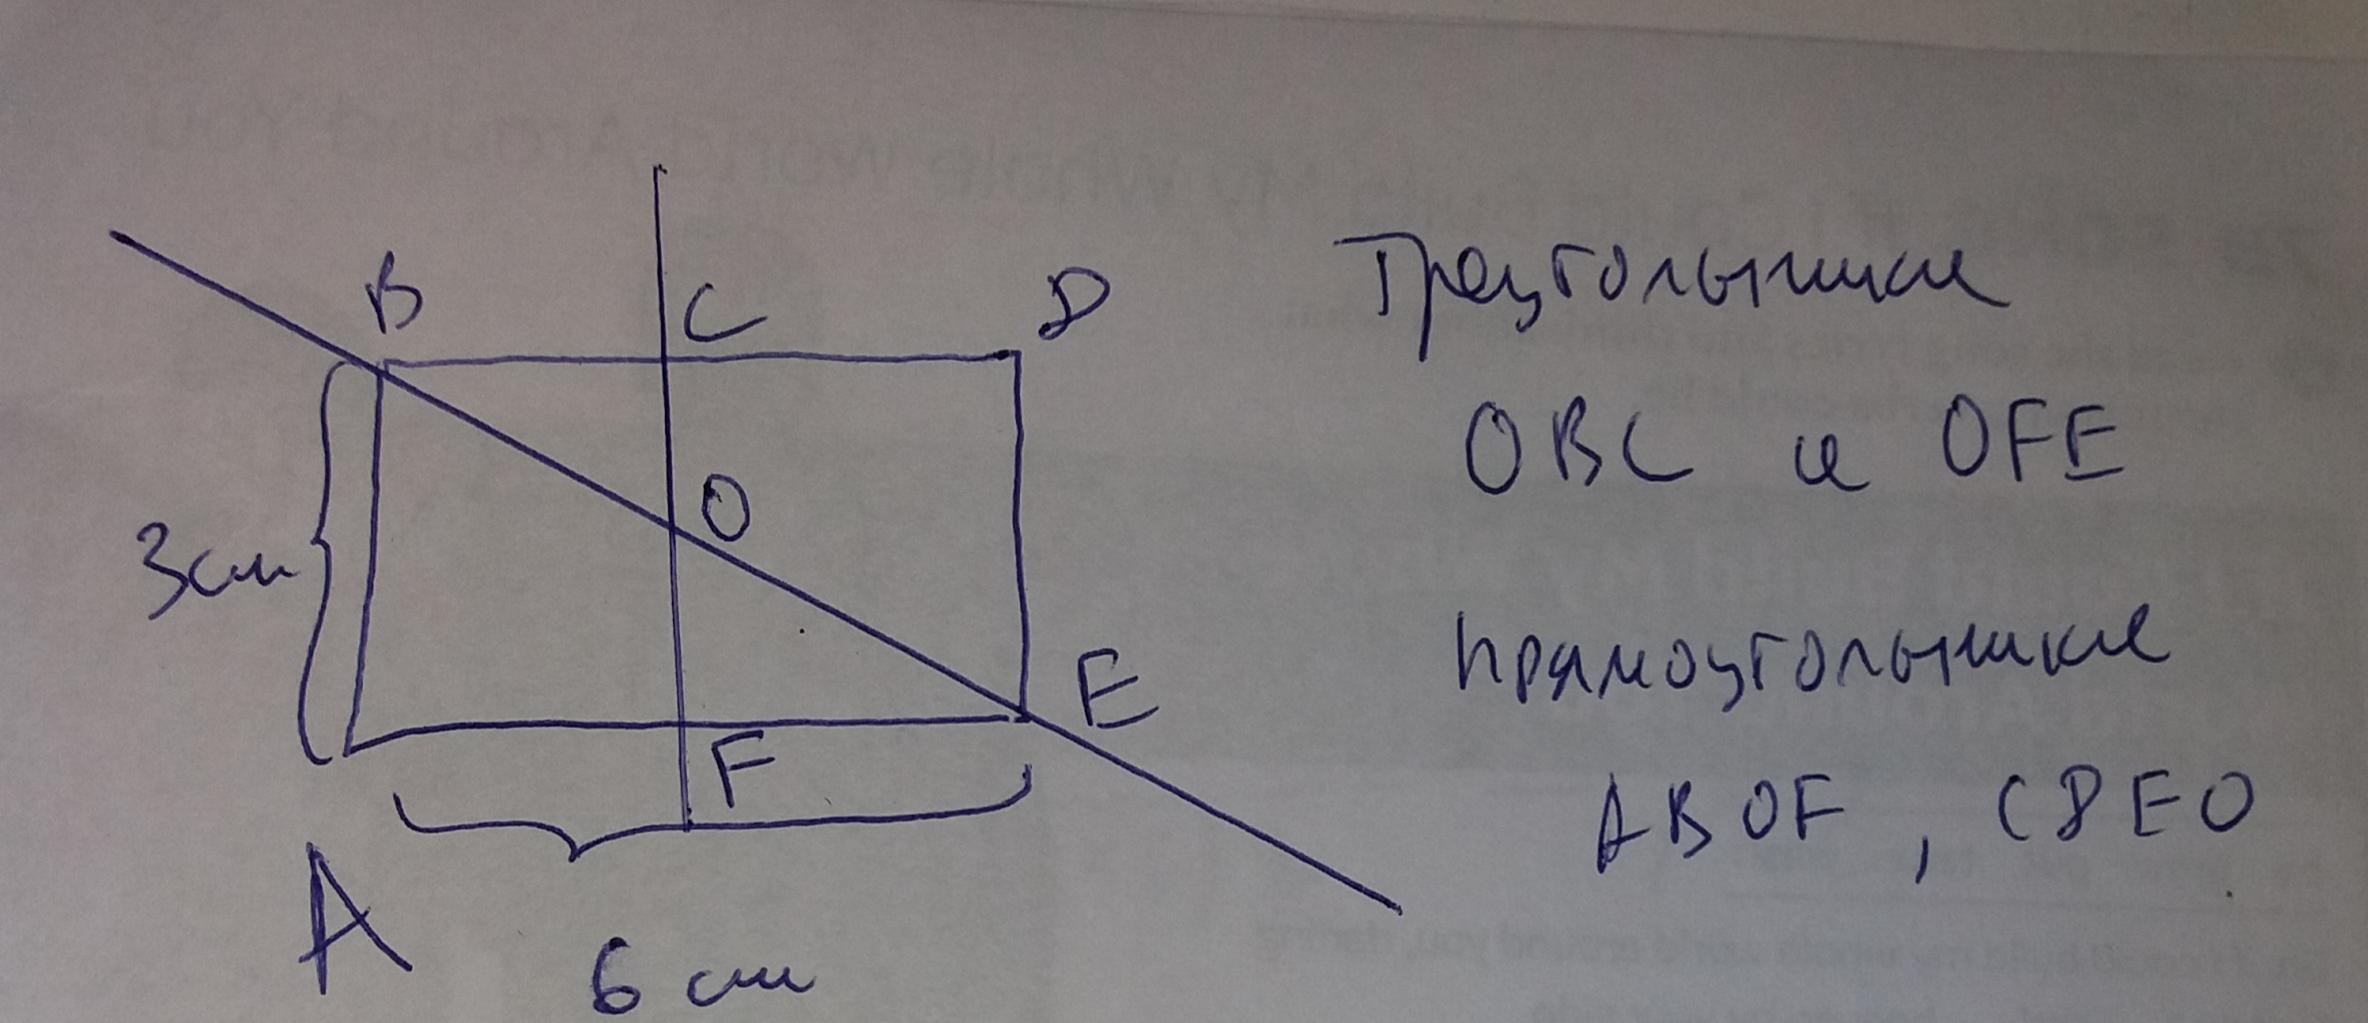 B
C
D
O
3см
E
F
A
6 см
Треугольники
OBC и OFE
прямоугольники
ABOF, CDEO